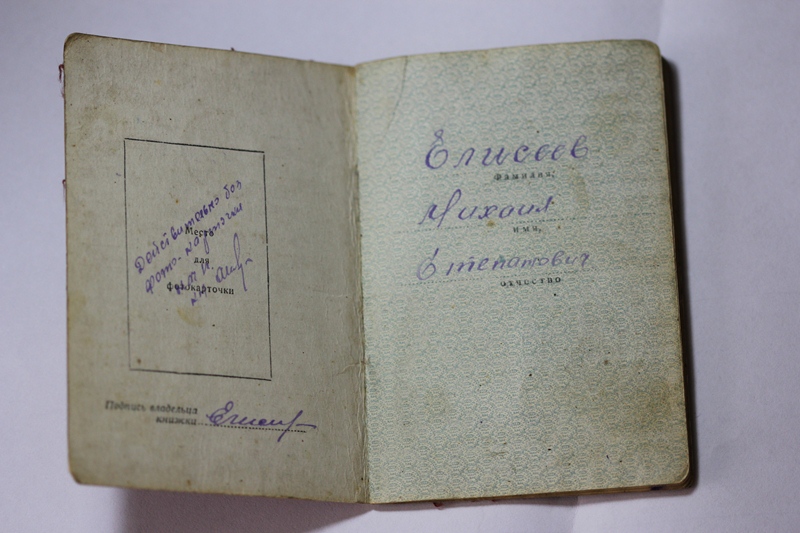 Действительно без
фото-карточки
Место
для
фотокарточки
Подпись владельца
книжки
Елисеев
Фамилия,
Михаил
имя,
Степанович
отчество